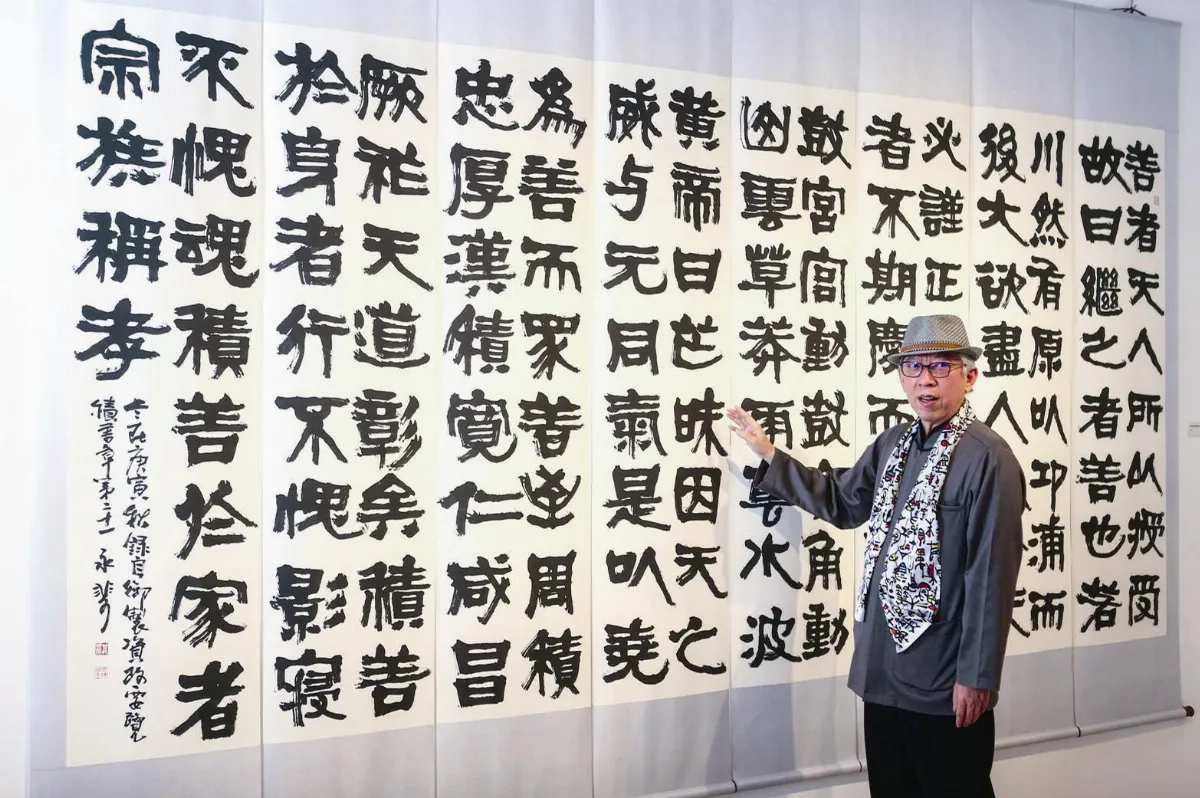 善者天人所以授受
故曰繼之者善也若
川然有原以卬浦而
後大欲盡人
必謹正
者不期慶而
鼓宮宮動鼓角動
山雲草莽雨雲水波
黃帝曰芒昧因天之
威与元同氣是以堯
為善而眾善至周積
忠厚漢積寬仁咸昌
厥祚天道彰矣積善
於身者行不愧影寢
不愧魂積善於家者
宗族稱孝
在庚寅秋錄自御製資政要覽
積善章第二十一 永